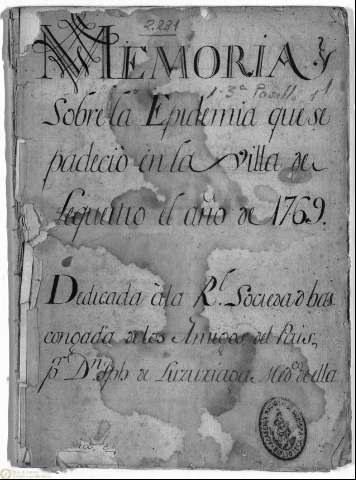 2.221
MEMORIA
1.3ª
Sobre la Epidemia que se
padeciò en la Villa de
Lequeitio el año de 1769.
Dedicada à la Rl. Sociedad bas
congada de los Amigos del Pais,
pr Dn Jph de Luzuriaga Medco de ella